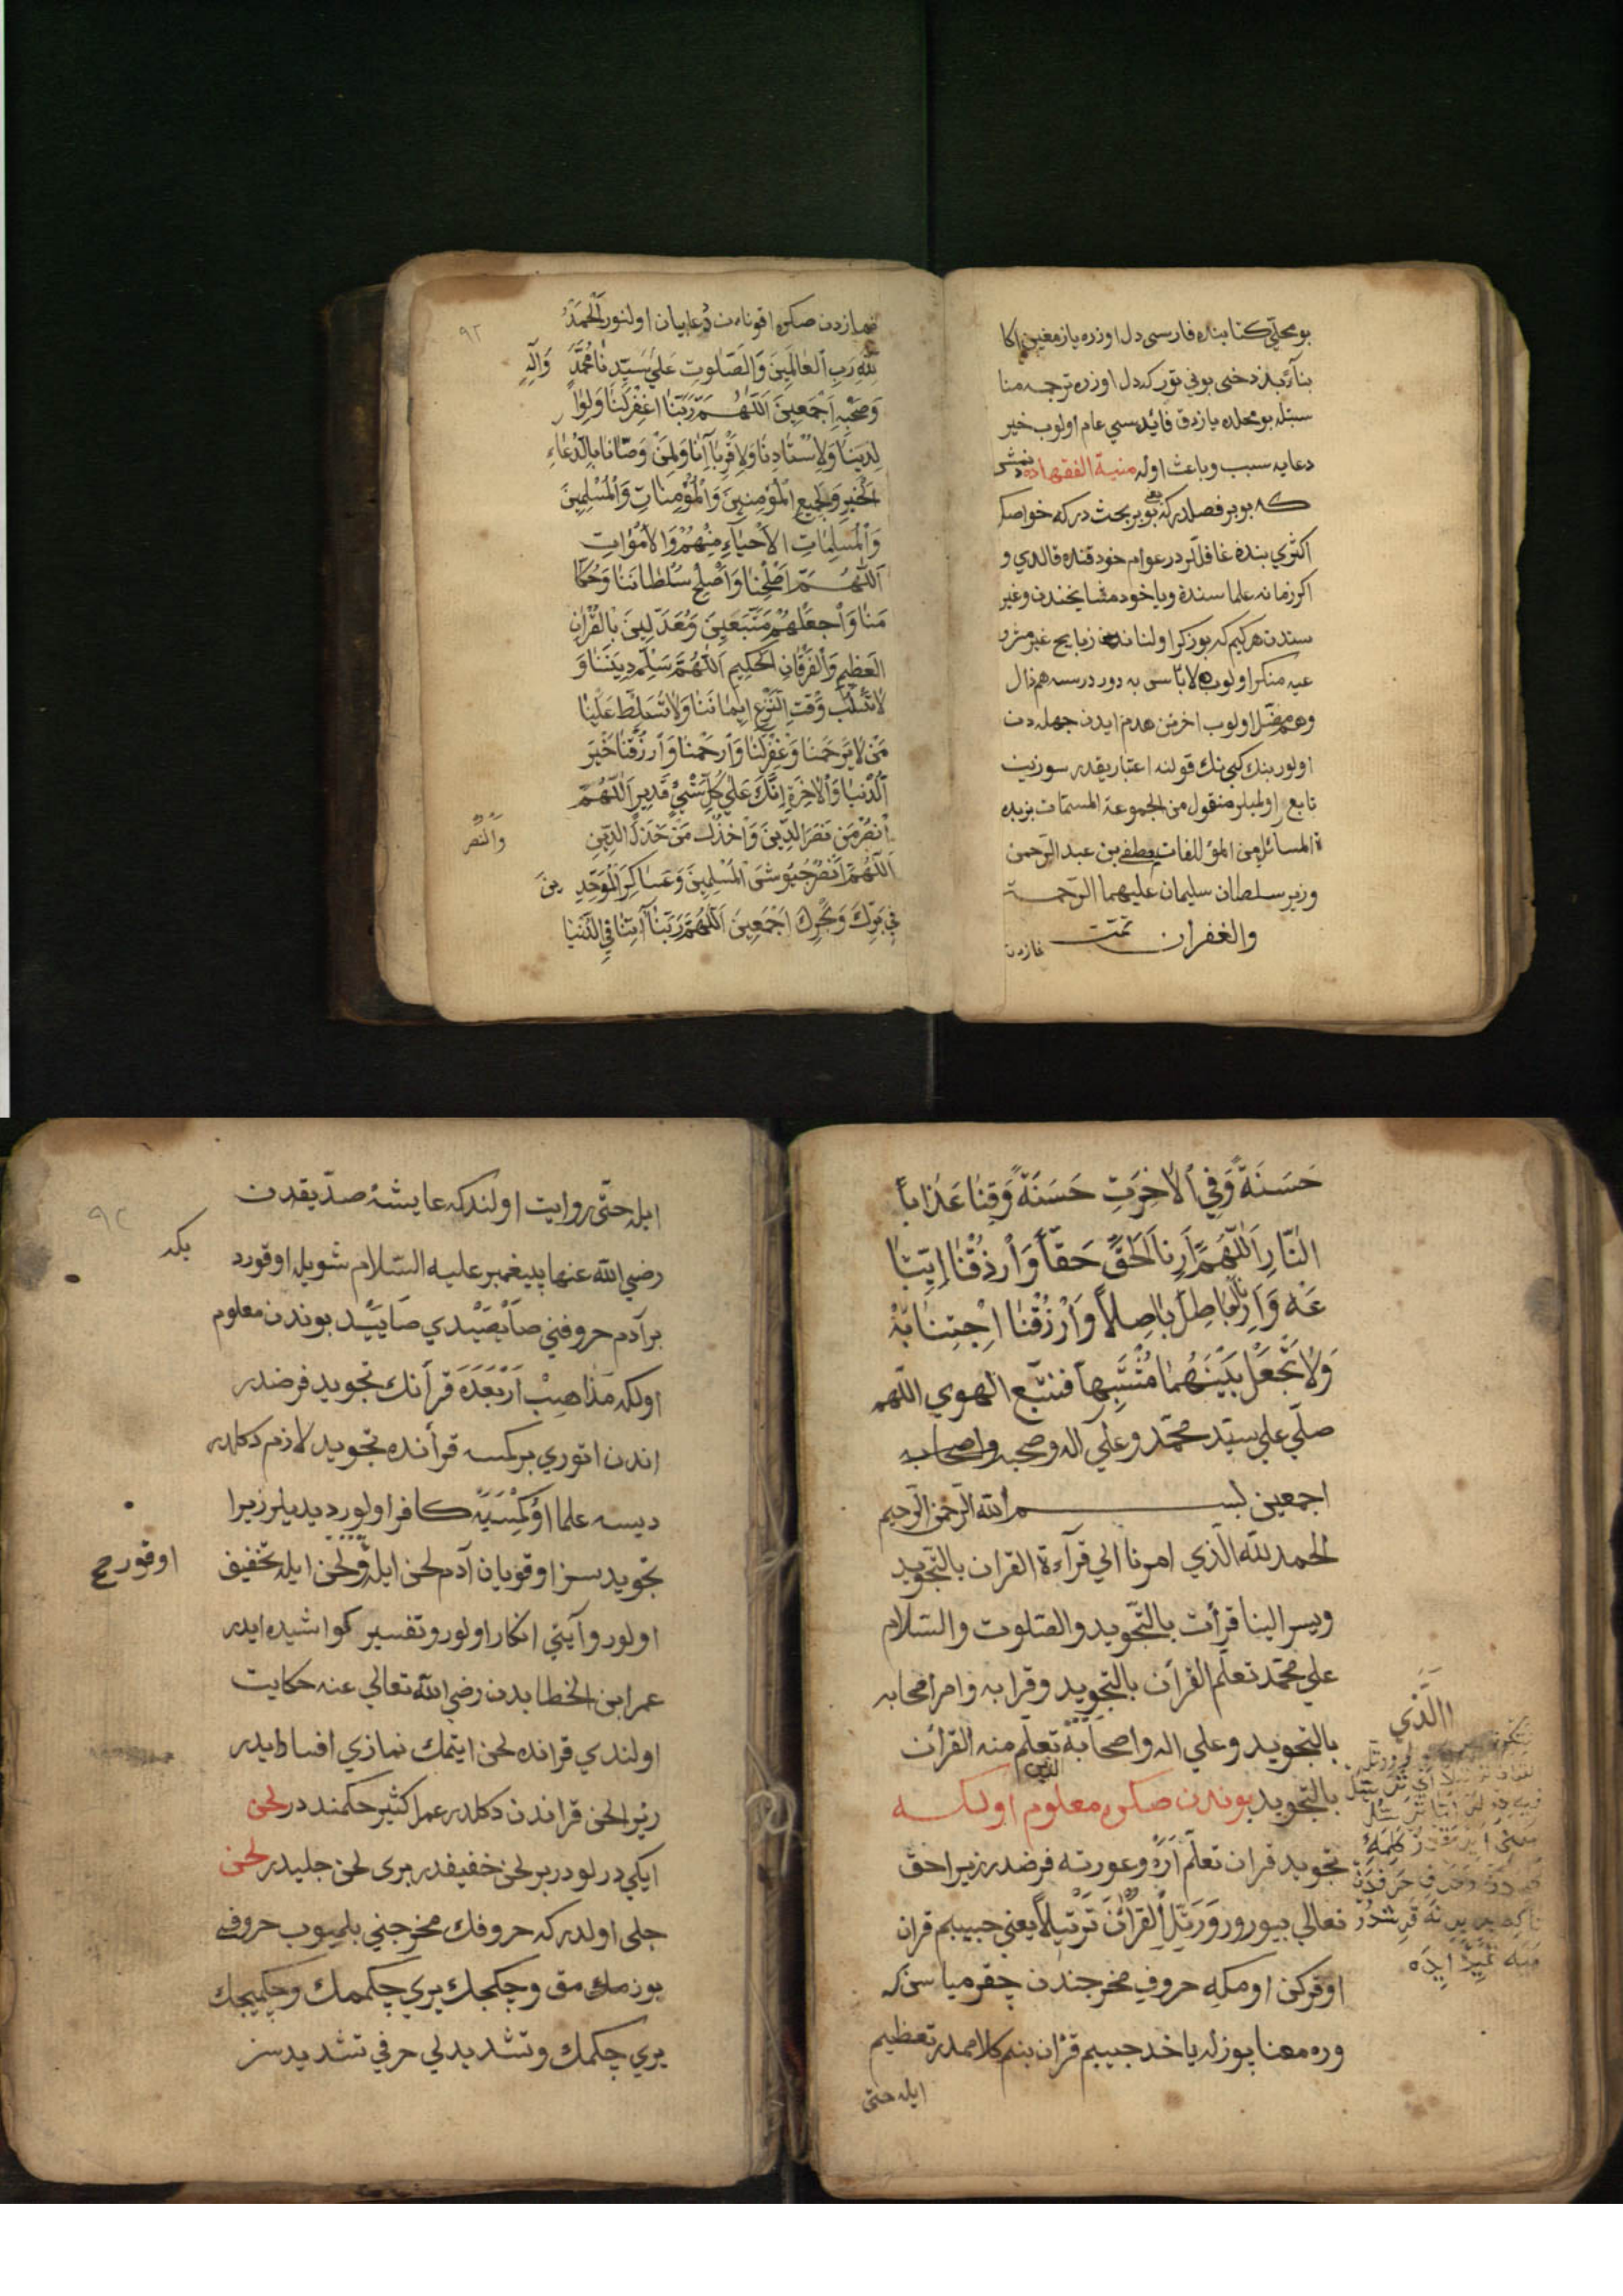 بو محلّى كتابنده فارسى دل اوزره يازمغين اكا
بنآءً بز دخى بونى تورككه دل اوزره ترجمه منا
سبتله بو محلده يازدق فائده سى عام اولوب خير
دعايه سبب وباعث اوله منية الفقهاده دنمشى
كه بو بر فصلدركه يعنى بو بر بحث دركه خواصك
اكثرى بنده غافللر در عوام خود قنده قالدى و
اكر زمانه علماسنده ويا خود مشايخندن وغير
سندن هركيم كه بو ذكر اولنان زبايح غير مشرو
عيه منكر اولوب لا بأسى به دور درسه هم ضال
وهم مضّل اولوب اخرتن هدم ايدن جهله دن
اولور بنك كبى نك قولنه اعتبار يقدر سوزينه
تابع اولميلر منقول من المجموعة المسمّات بزبده
ة المسائل من المؤللفات مصطفى بن عبد الرّحمن
وزير سلطان سليمان عليهما الرّحمة
والغفران تمّت
نمازدن
نمازدن صكره اقونان دُعا بيان اولنور اَلْحَمْدُ
٩٢
لِلّٰهِ رَبِ اْلعٰالَمِينَ وَالصَّلٰوتِ عَلٰي سَيِّدِنٰا مُحَمَّدٍ وَآلِهِ
وَصَحْبِهِ اَجْمَعِينَ اَللّٰهُمَّ رَبَّنَا اغْفِرْ لَنٰا وَلِوٰا
لِدِينٰا وَلِاُسْتٰادِنٰا وَلِاَقْرِبٰآنٰا وَلِمَنْ وَصّٰانٰا بِالدُّعٰاءِ
الْخَيْرِ وَلِجَمِيعِ الْمُؤْمِنِينَ وَالْمُؤْمِنٰاتِ وَالْمُسْلِمِينَ
وَالْمُسْلِمٰاتِ الْاَحْيٰآءِ مِنْهُمْ وَالْاَمْوٰاتِ
اَللّٰهُمَّ اَصْلِحْنٰا وَاَصْلِحْ سُلْطٰانَنٰا وَحُكّٰا
مَنٰا وَاجْعَلْهُمْ مُتَّبَعِينَ وَمُعَدَّلِينَ بِالْقُرْاٰنِ
الْعَظِيمِ وَالْفُرْقَانِ الْحَكِيمِ اَللّٰهُمَّ سَلِّمْ دِينَنٰا وَ
لٰا تَسْلُبْ وَقْتِ النَّزْعِ اِيمٰانَنٰا وَلٰا تُسَلِّطْ عَلَيْنٰا
مَنْ لٰا يَرْحَمْنٰا وَغْفِرْلَنٰا وَارْحَمْنٰا وَارْزُقْنٰا خَيْرَ
الدُّنْيٰا وَالْاٰخِرَةِ اِنَّكَ عَلٰي كُلِّ شَيْءٍ قَدِيرٍ اَللّٰهُمَّ
اَنْصُرْ مَنْ نَصَرَ الدِّينَ وَاخْذُلْ مَنْ خَذَلَ الدِّينِ
والنصر
اَللّٰهُمَّ اَنْصُرْ جُيُوشَى الْمُسْلِمِينَ وَعَسٰاكِرَ الْمُوَحِّدِينَ
فِي بَرِّكَ وَبَحْرِكَ اَجْمَعِينَ اَللّٰهُمَّ رَبَّنٰا آتِنٰا فِي الدُّنْيٰا
حَسَنَةً وَفِي الْاٰخِرَتِ حَسَنَةً وَقِنٰا عَذٰاباً
النّٰارِ اَللّٰهُمَّ اَرِنٰا الْحَقَّ حَقّاً وَارْزُقْنٰا اِتِّبٰا
عَهُ وَاَرِنٰا الْبٰاطِلَ بٰاطِلاً وَارْزُقْنٰا اِجْتِنٰابَهُ
وَلٰا تَجْعَلْ بَيْنَهُمٰا مُتَشَبِّهاً فنتبّع الهوي اللّهم
صلّي علي سيّد محمّد وعلي اله وصحبه واصحابه
اجمعين بسم الله الرّحمن الرّحيم
الحمد للّه الّذي امرنا الي قرآءة القران بالتّجويد
ويسر الينا قرأت بالتّجويد والصّلوت والسّلام
علي محمّد تعلّم القرآن بالتجويد وقرا به وامر اصحابه
الّذي
بالتجويد وعلي اله واصحابه تعلّم منه القرآن
الذين
بالتّجويد بوندن صكره معلوم اولسكه
تجويد قران تعلّم اره وعورته فرضدر زيرا حق
تعالي بيورور وَرَتِّلِ الْقُرْاٰنَ تَرْتِيلاً يعني حبيبم قران
اوقركن اومكه حروفي مخرجندن چقرمياسنكه
وره معنا بوزله يا خد حبيبم قرٰان بنم كلاممدر تعظيم
ايله حتى
ايله حتّى روايت اولندكه عايشهٔ صدّيقدن
٩٣
رضي الله عنها پيغمبر عليه السّلام شويله اوقورد
بكه
بر آدم حروفني صايصيدي صاييد بوندن معلوم
اولكه مَذاهِبْ اَرْبَعَدَه قرأنك تجويد فرضدر
اندن اتوري بر كمسه قرأنده تجويد لازم دكلدر
ديسه علما اوُكِمْسَيَه كافر اولور ديديلر زيرا
تجويد سز اوقويان آدم لحن ايله ولحن ايله تخفيف
اوقورح
اولور وآيتي انكار اولور وتفسير كواشيده ايدر
عمر ابن الخطابدن رضي الله تعالي عنه حكايت
اولندي قرانده لحن ايتمك نمازي افساد ايدر
زيرا لحن قراندن دكلدر عمل كثير حكمنددر لحن
ايكي درلودر بر لحن خفيفدر بري لحن جليدر لحن
جلى اولدر كه حروفك مخرجني بلميوب حروفي
بوزمك مق وچكجك يري چكممك وچكميجك
يري چكمك وتشديدلي حرفي تشديدسز